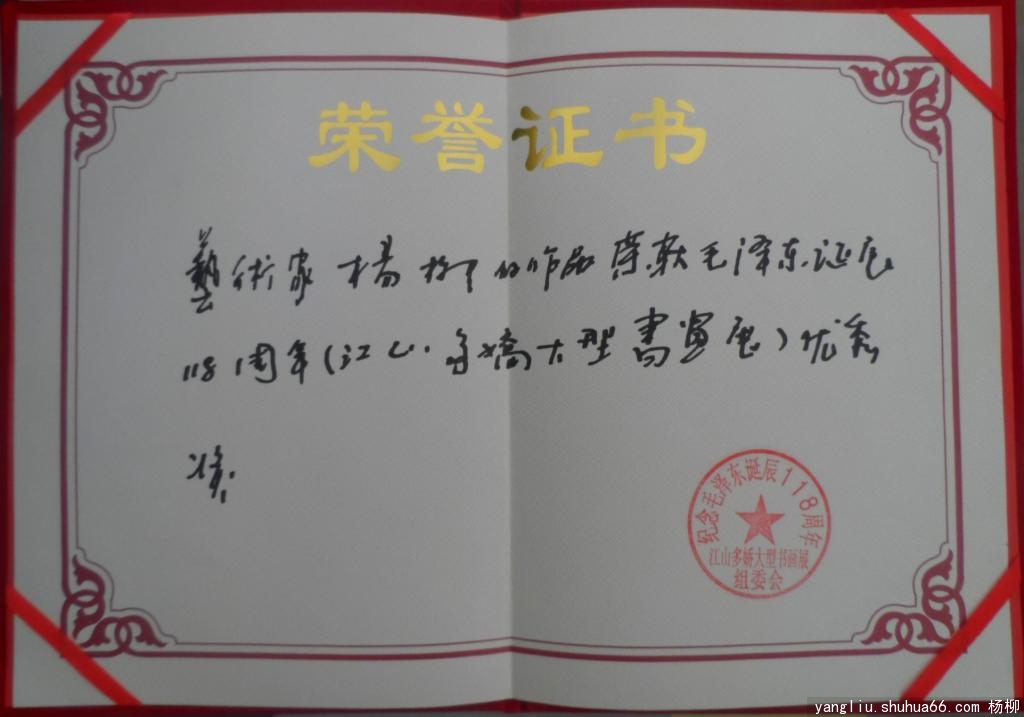 荣誉证书
藝術家 楊柳的作品 荣获毛泽东诞辰
118周年(江山多嬌大型書畫展)优秀
奖
纪念毛泽东诞辰118周年
江山多娇大型书画展
组委会
yangliu.shuhua66.com 杨柳